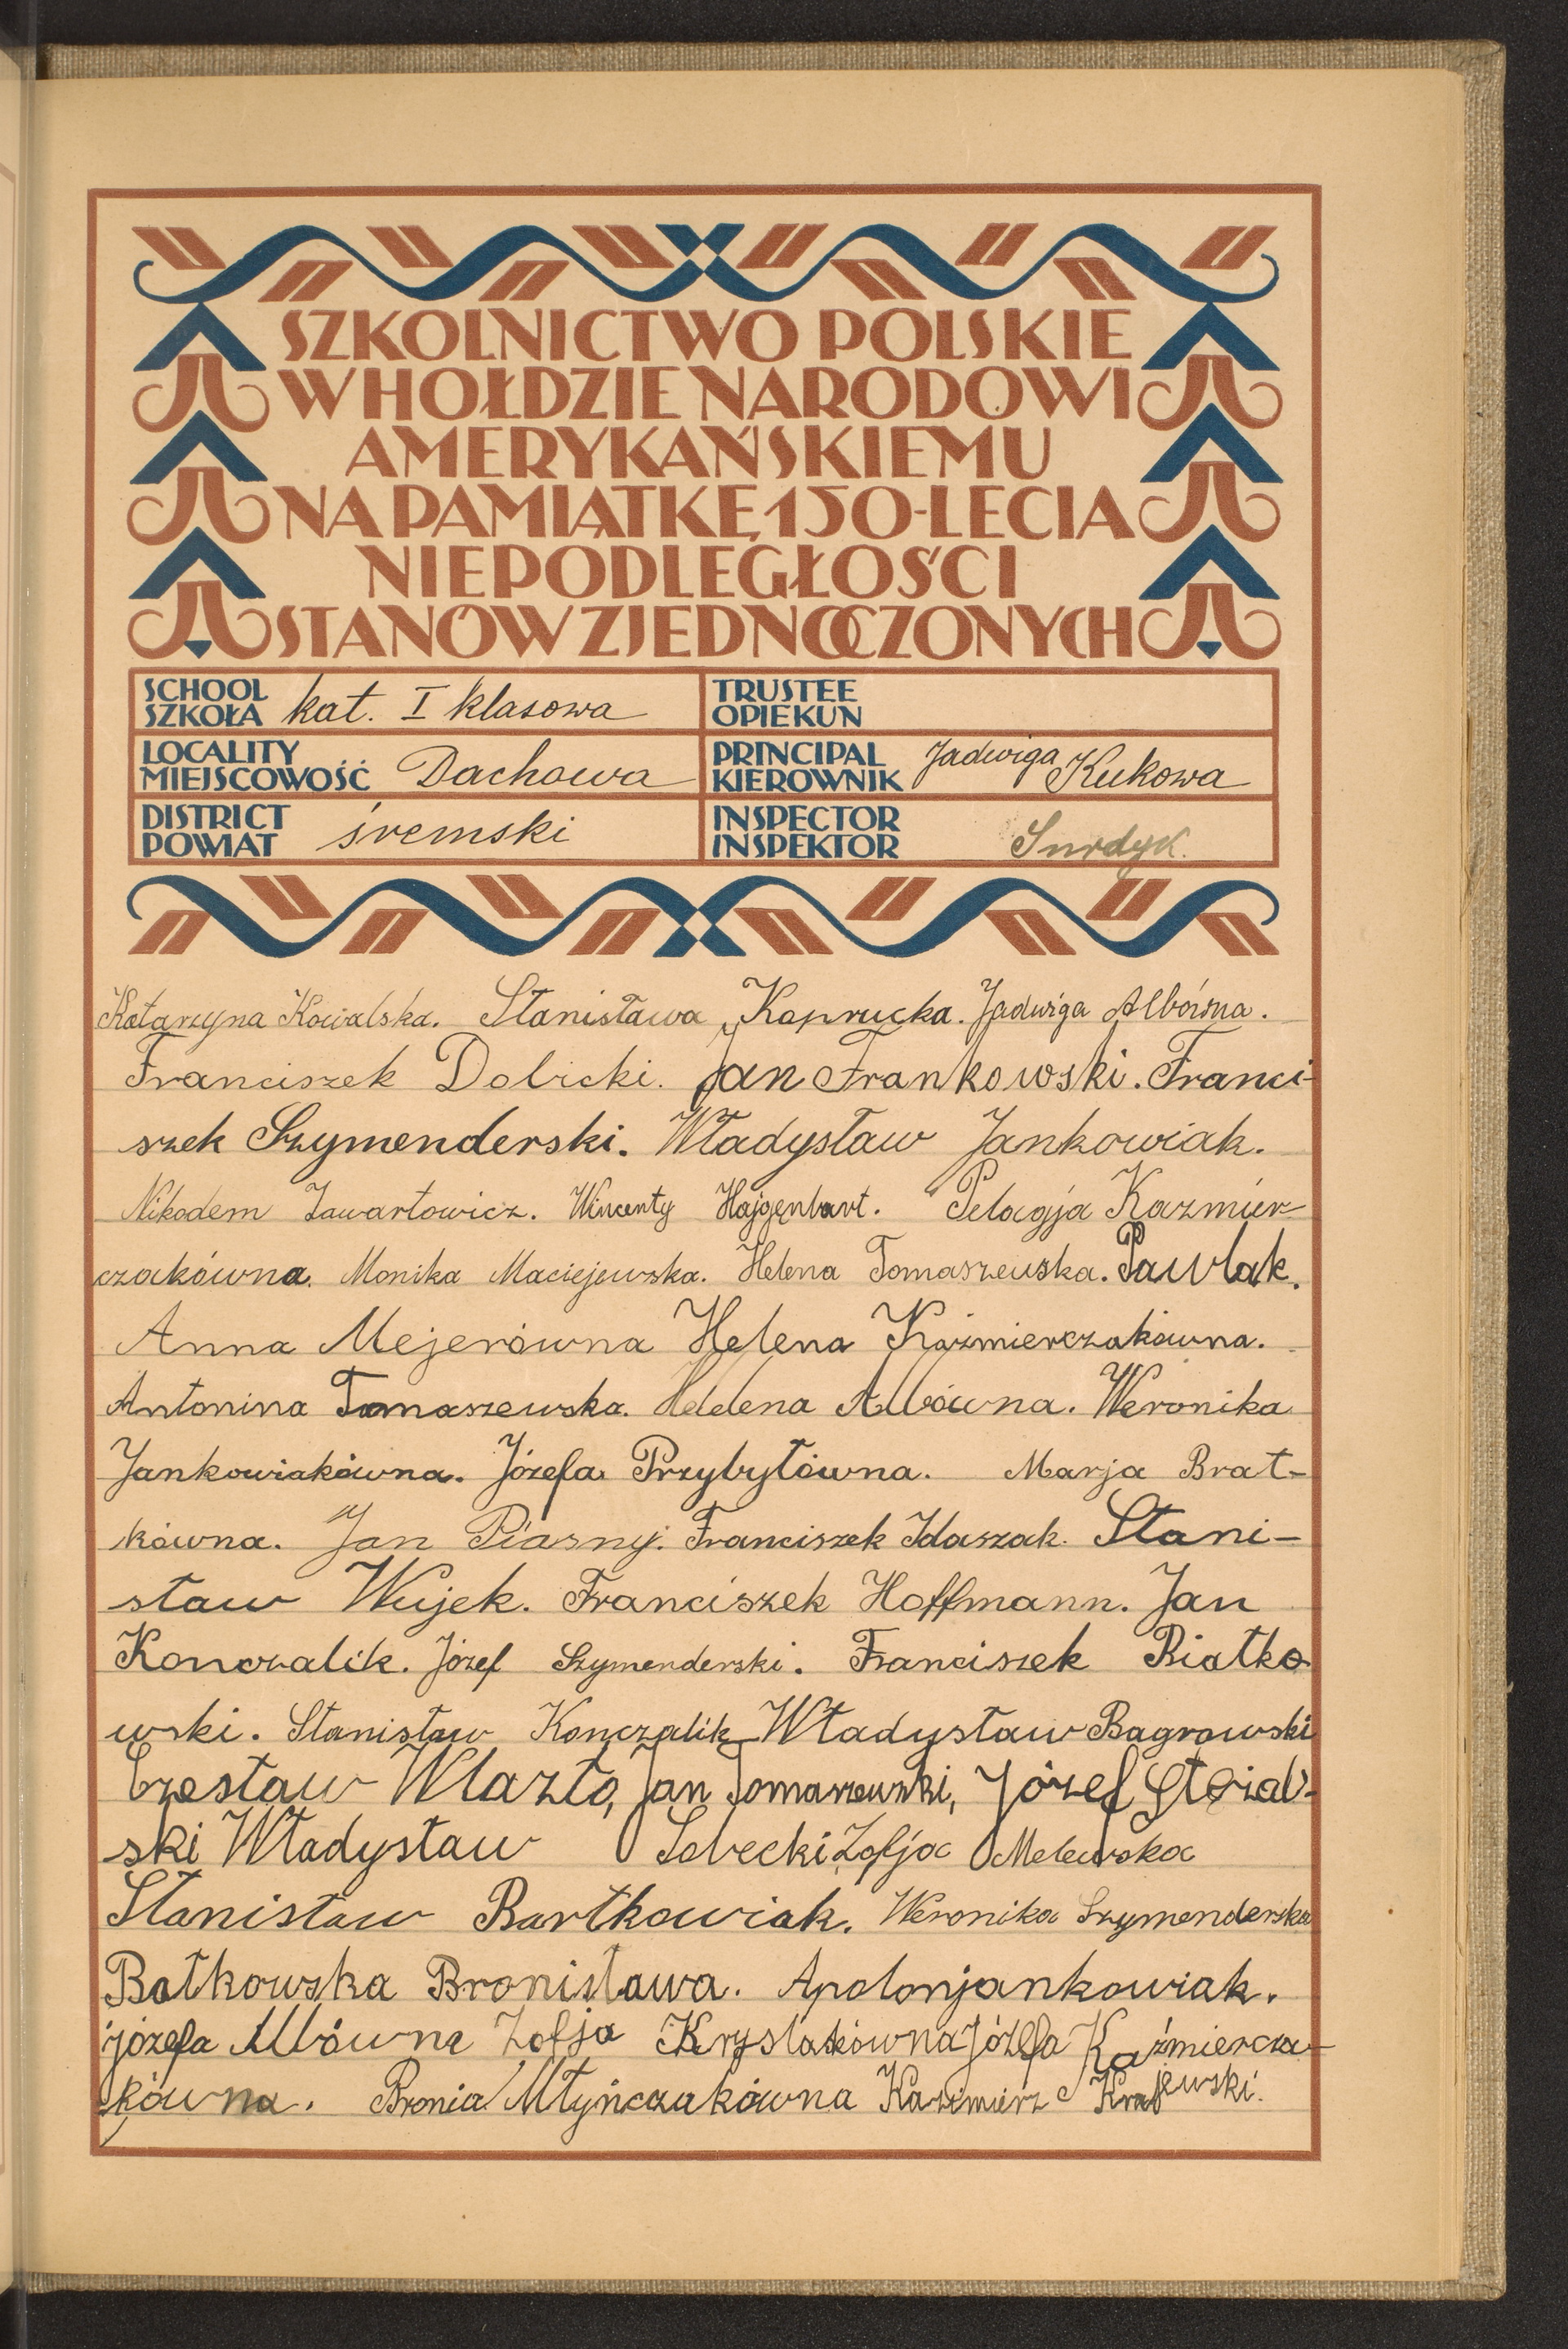 SZKOLNICTWO POLSKIE
W HOŁDZIE NARODOWI
AMERYKAŃSKIEMU
NA PAMIĄTKĘ 150-LECIA
NIEPODLEGŁOŚCI
STANÓW ZJEDNOCZONYCH
SCHOOL
SZKOŁA kat. I klasowa
TRUSTEE
OPIEKUN
LOCALITY
MIEJSCOWOŚĆ Dachowa
PRINCIPAL
KIEROWNIK Jadwiga Kukowa
DISTRICT
POWIAT śremski
INSPECTOR
INSPEKTOR Surdyk.
Katarzyna Kowalska. Stanisława Kaprucka. Jadwiga Albówna.
Franciszek Dolicki. Jan Frankowski. Franci-
szek Szymenderski. Władysław Jankowiak.
Nikodem Zawartowicz. Wincenty Hajgenbart. Pelagja Kazmier-
czakówna. Monika Maciejewska. Helena Tomaszewska. Pawlak.
Anna Mejerówna Helena Kaźmierczakówna.
Antonina Tomaszewska. Helelena Albówna. Weronika
Jankowiakówna. Józefa Przybyłówna. Marja Brat-
kówna. Jan Piasny. Franciszek Idaszak. Stani-
sław Wujek. Franciszek Hoffmann. Jan
Konczalik. Józef Szymenderski. Franciszek Białko
wski. Stanisław Konczalik Władysław Bagrowski
Czesław Wlazło, Jan Tomaszewski, Józef
ski Władysław Sobecki Zofja Melewska
Stanisław Bartkowiak. Weronika Szymenderska
Batkowska Bronisława. Apolonjankowiak.
józefa Albówna Zofja Krysiakówna józefa Kaźmiercza-
kówna. Bronia Młyńczakówna Kazimierz Krajewski.